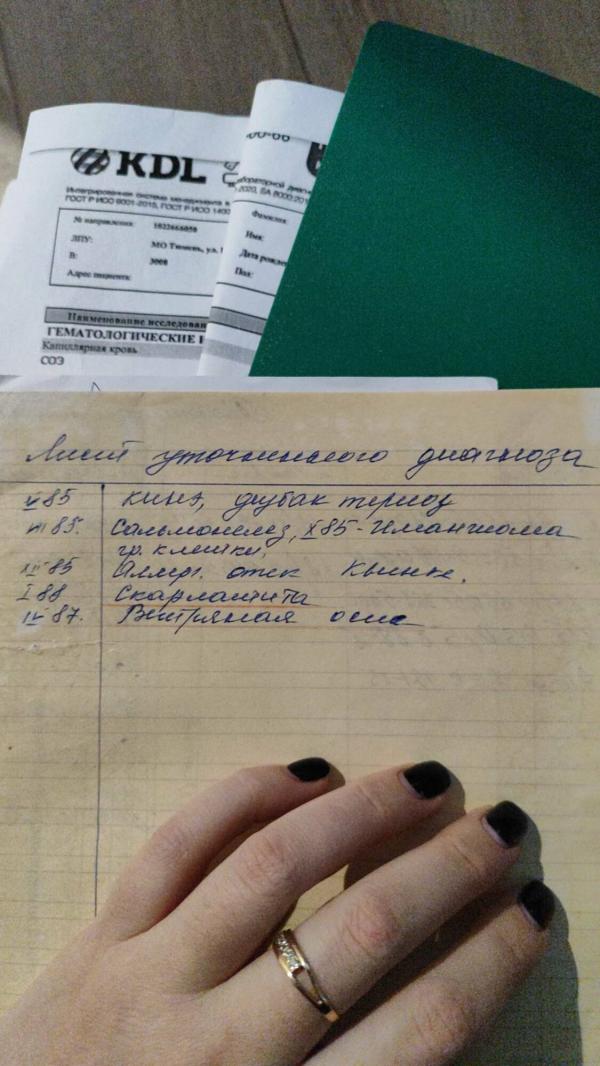 KDL
Интегрированная система менеджмента
ГОСТ Р ИСО 9001-2015, ГОСТ Р ИСО
№ направления: 1022666050
ЛПУ: МО Тюмень, ул.
В: 3008
Адрес пациента:
Наименование исследован
ГЕМАТОЛОГИЧЕСКИЕ
Капиллярная кровь
СОЭ
00-66
лабораторной
2020, SA 8000:201
Фамилия:
Имя:
Дата рожден
Пол:
Лист уточненного диагноза
85
85. Сальмонелез, X 85 - Гемангиома
гр. клетки,
III 85 Аллерг. отек Квинке.
I 88 Скарлатина
IV 87. Ветряная оспа